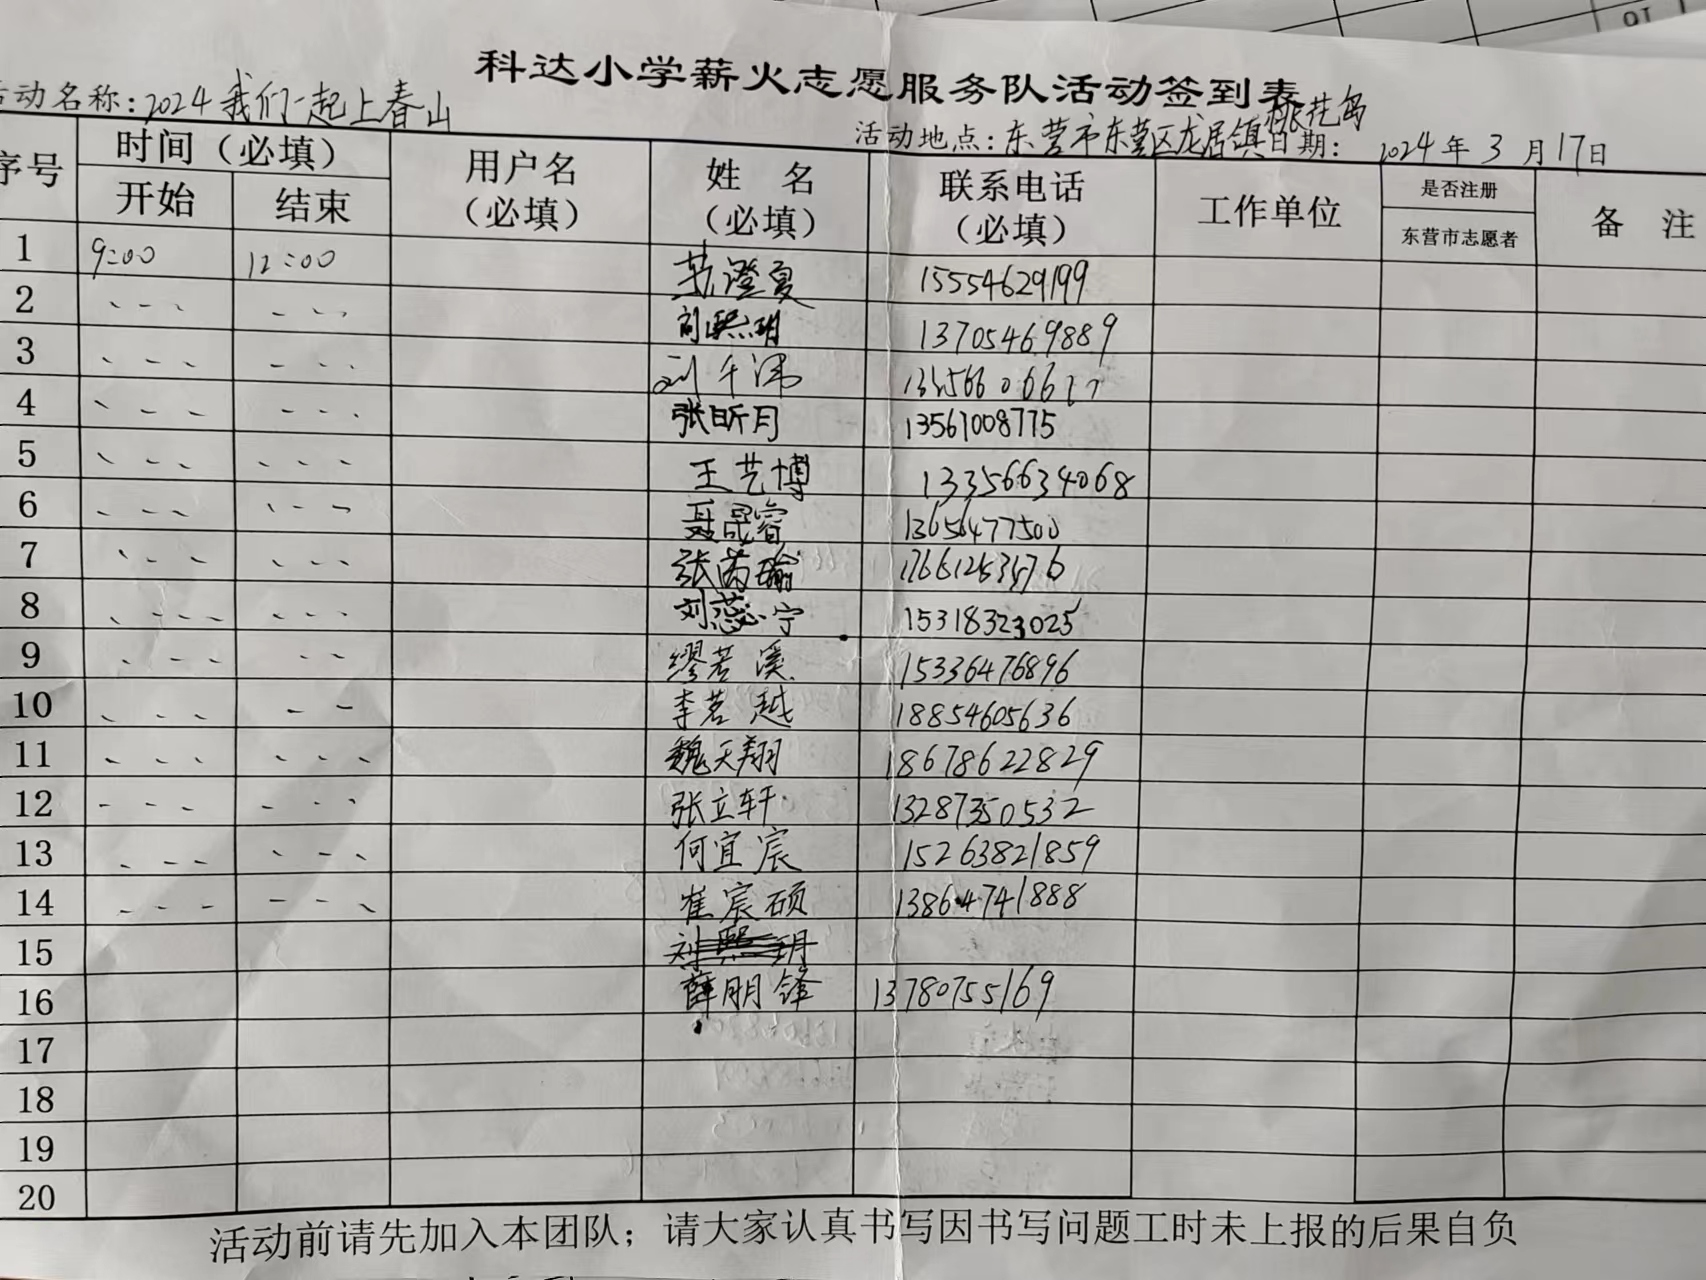 科达小学薪火志愿服务队活动签到表
活动名称:2024我们一起上春山
活动地点:东营市东营区龙居镇桃花岛 日期: 2024年3月17日
序号 时间(必填) 用户名(必填) 姓名(必填) 联系电话(必填) 工作单位 是否注册东营市志愿者 备注
开始 结束
1 9:00 12:00 澄夏 15554629199
2 刘熙玥 13705469889
3 刘千
4 张昕月 13561008775
5 王艺博 133566634068
6 聂晟睿 13656477500
7 张芮瑜
8 刘蕊宁 15318323025
9 缪若溪 15336476896
10 李茗越 18854605636
11 魏天翔 18678622829
12 张立轩 13287350532
13 何宜宸 15263821859
14 崔宸硕 13864741888
15 刘熙玥
16 薛朋锋 13780755169
17
18
19
20
活动前请先加入本团队;请大家认真书写因书写问题工时未上报的后果自负